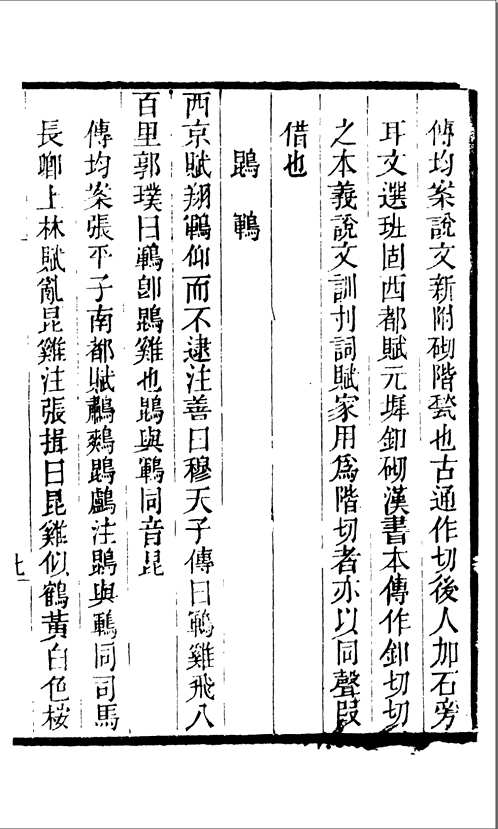 傅均案說文新附砌階甃也古通作切後人加石旁
耳文選班固西都賦元墀釦砌漢書本傳作釦切切
之本義說文訓刌詞賦家用爲階切者亦以同聲叚
借也
鵾鶤
西京賦翔鶤仰而不逮注善曰穆天子傳曰鶤雞飛八
百里郭璞曰鶤卽鵾雞也鵾與鶤同音昆
傅均案張平子南都賦鷫鷞鵾鸕注鵾與鶤同司馬
長卿上林賦亂昆雞注張揖曰昆雞似鶴黃白色桉